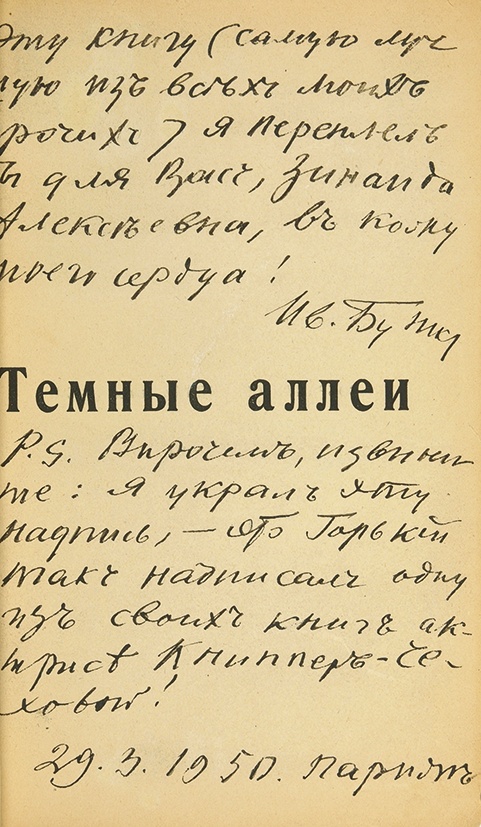 Эту книгу (самую луч
шую изъ всѣхъ моихъ
прочихъ) я переплелъ
для Васъ, Зинаида
Алексѣевна, въ кожу
моего сердца!
Ив. Бунин
Темные аллеи
P.S. Впрочемъ, извини-
те: я укралъ эту
надпись, — это Горькій
такъ надписалъ одну
изъ своихъ книгъ ак-
трисѣ Книпперъ-Че-
ховой!
29. 3. 1950. Парижъ